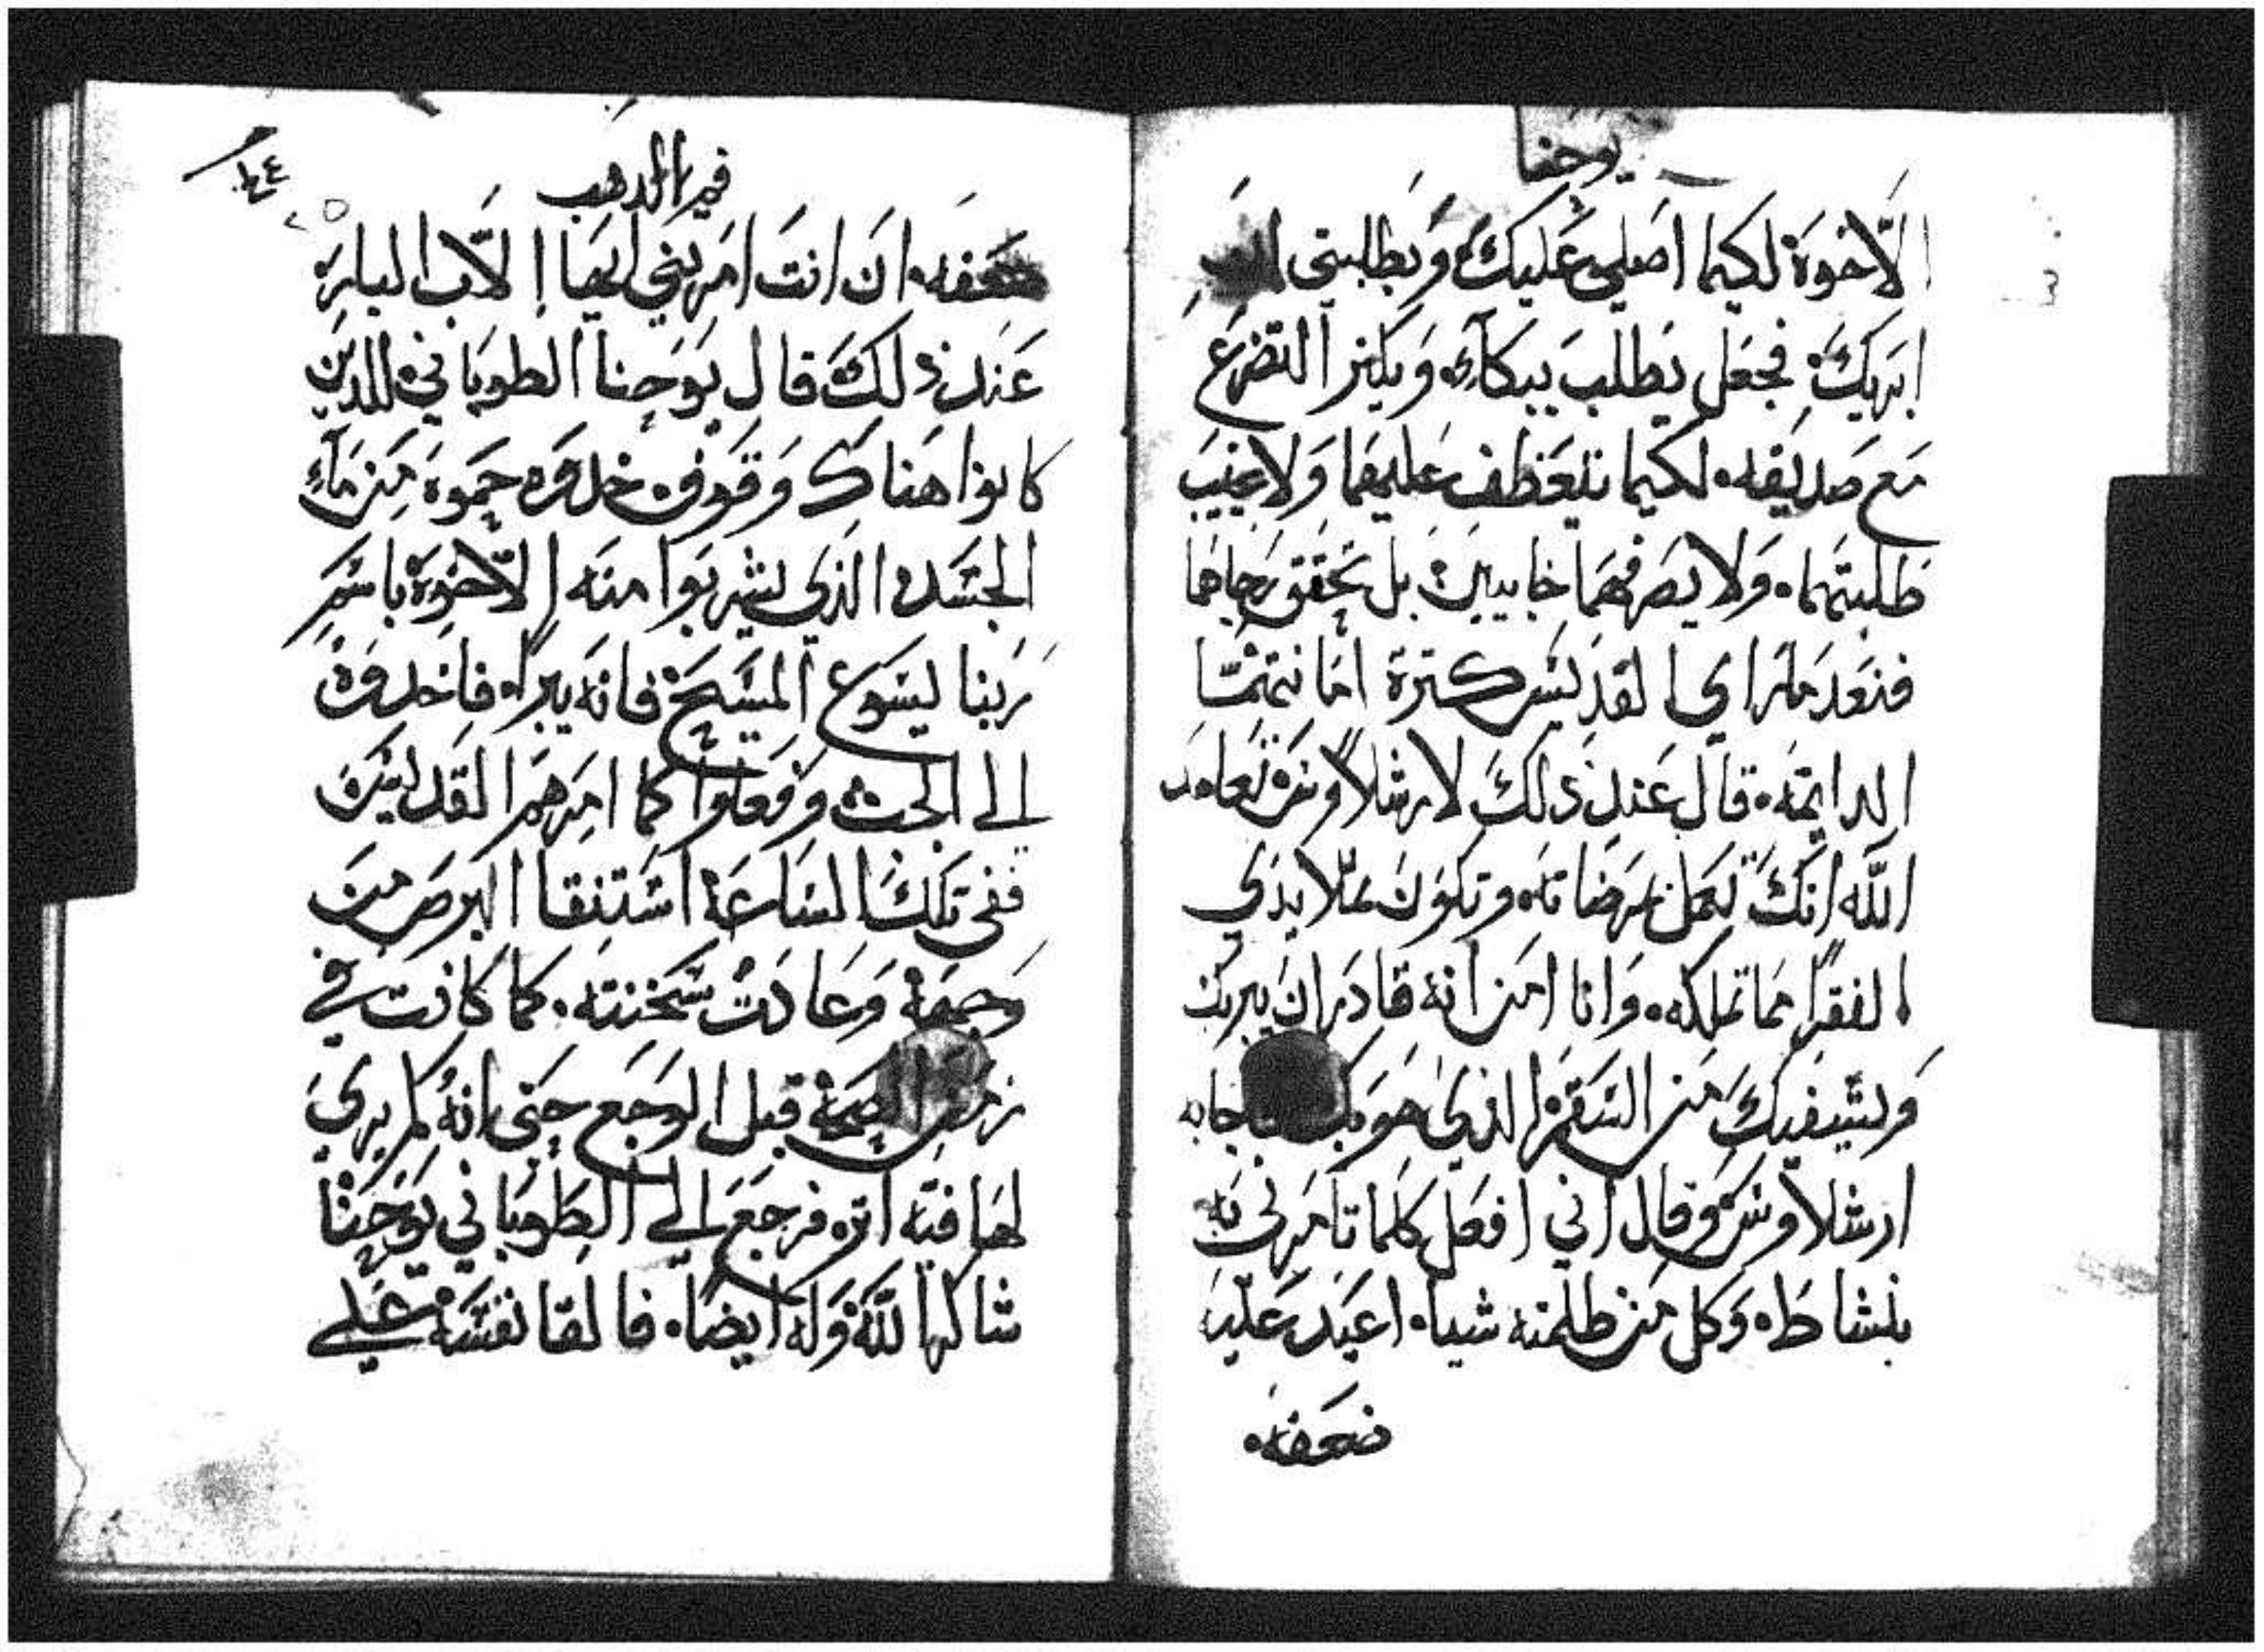 يوحنا
الاخوة لكيما اصلي عليك وبطلبتي
ابريك فجعل يطلب ببكآء ويكثر التضرع
مع صديقه لكيما يتعطف عليهما ولا يخيب
طلبتهما ولا يصرفهما خايبين بل يحقق رجاهما
فنعد ما راي القديس كثرة
الدايمة قال عند ذلك لارشلاوش تعاهد
الله انك تعمل مرضاته وتكون علا بدي
الفقرا مما تملكه وانا امن انه قادر ان يبريك
ويشفيك من السقم الذي هو بك فاجابه
ارشلاوش وقال اني افعل كلما تامرني به
بنشاط وكل من ظلمته شيا اعيد عليه
ضعفه
فم الدهب
ضعفه ان انت امرتني ايها الاب البار
عند ذلك قال يوحنا الطوباني للدين
كانوا هناك وقوف خدوه حموه من مآء
الجسد الذي يشربوا منه الاخوة باسم
ربنا يسوع المسيح فانه يبرا فاخدوه
الي الجث وفعلوا كما امرهم القديس
ففي تلك الساعة استنقا البرص من
وجهه وعادت سخنته كما كانت في
زمن الصحة قبل الوجع حتي انه لم يري
لها فيه اثر فرجع الي الطوباني يوحنا
شاكرا لله وله ايضا فالقا نفسه علي